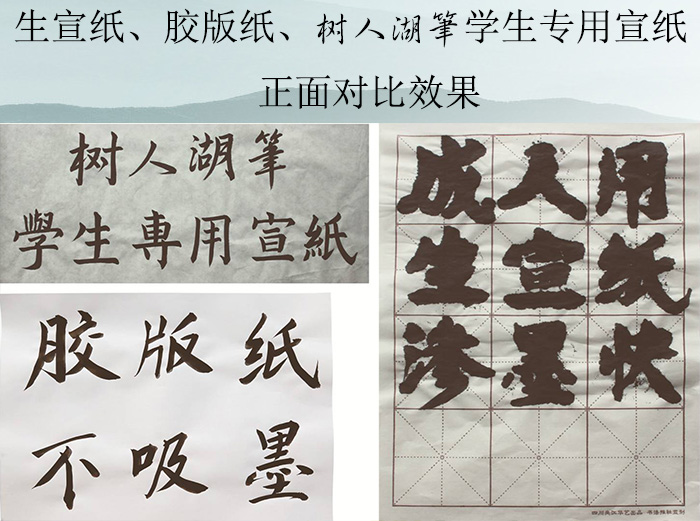 生宣纸、胶版纸、树人湖筆学生专用宣纸
正面对比效果
树人湖筆
學生專用宣紙
胶版纸
不吸墨
成人用
生宣纸
渗墨状